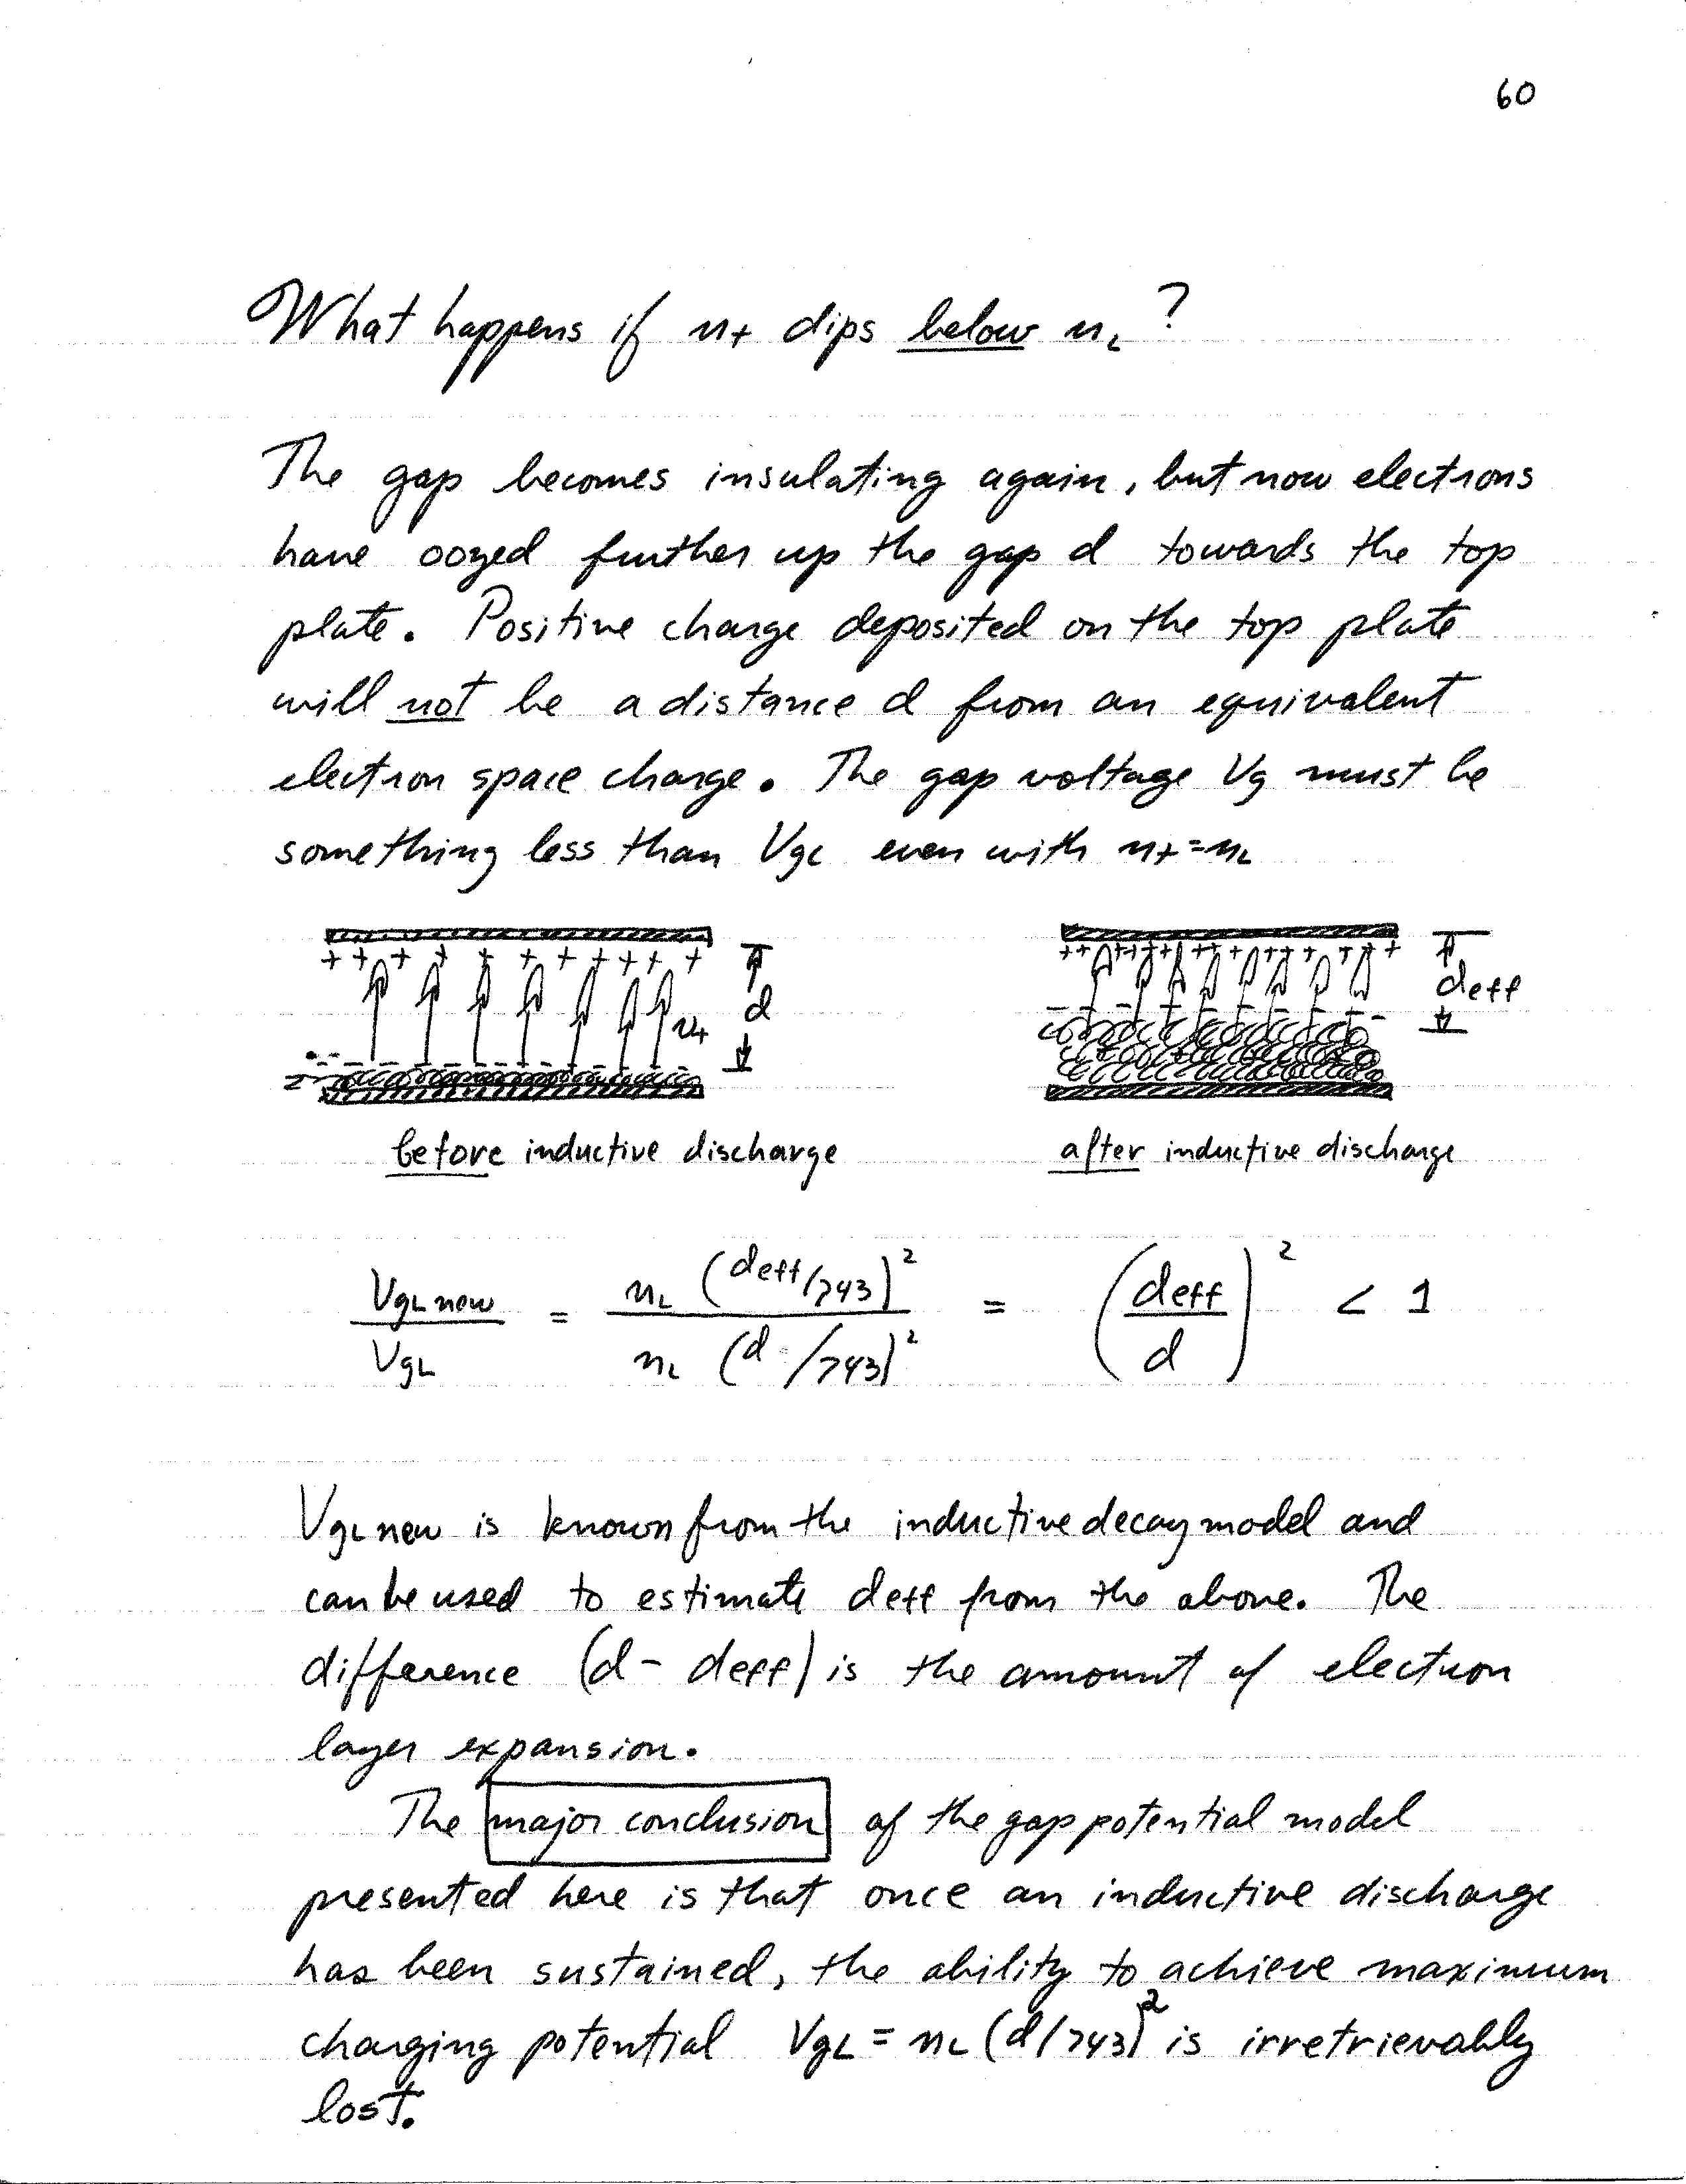 60
What happens if n+ dips below nL ?
The gap becomes insulating again, but now electrons
have oozed further up the gap d towards the top
plate. Positive charge deposited on the top plate
will not be a distance d from an equivalent
electron space charge. The gap voltage Vg must be
something less than VgL even with n+=nL
+ + + + + + + + + + +
d
n+
- - - - - -
before inductive discharge
++ +++ + ++ ++ + + +
deff
- - - - - -
after inductive discharge
VgL new / VgL = nL (deff/743)² / nL (d/743)² = (deff/d)² < 1
VgL new is known from the inductive decay model and
can be used to estimate deff from the above. The
difference (d - deff) is the amount of electron
layer expansion.
The major conclusion of the gap potential model
presented here is that once an inductive discharge
has been sustained, the ability to achieve maximum
charging potential VgL = nL (d/743)² is irretrievably
lost.